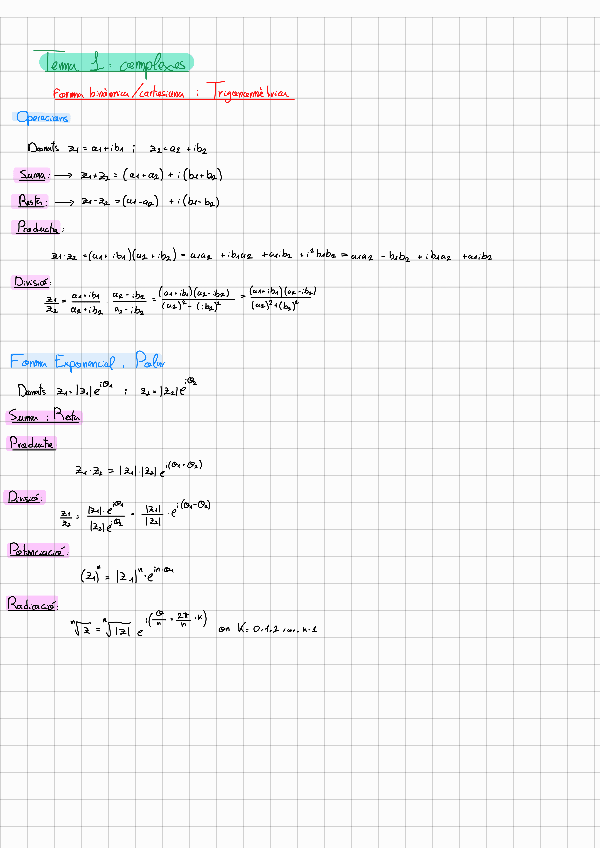 Tema 1: complexos
Forma binòmica/cartesiana i Trigonomètrica
Operacions
Donats z1 = a1+ib1 ; z2 = a2 + ib2
Suma: → z1+z2 = (a1+a2) + i(b1+b2)
Resta: → z1-z2 = (a1-a2) + i(b1-b2)
Producte:
z1·z2 = (a1+ib1)(a2+ib2) = a1a2 + ib1a2 + a1ib2 + i²b1b2 = a1a2 - b1b2 + ib1a2 + a1ib2
Divisió:
z1/z2 = (a1+ib1)/(a2+ib2) · (a2-ib2)/(a2-ib2) = (a1+ib1)(a2-ib2)/((a2)²-(ib2)²) = (a1+ib1)(a2-ib2)/((a2)²+(b2)²)
Forma Exponencial i Polar
Donats z1 = |z1| e^(iθ1) ; z2 = |z2| e^(iθ2)
Suma i Resta
Producte
z1·z2 = |z1|·|z2| e^(i(θ1+θ2))
Divisió:
z1/z2 = |z1|·e^(iθ1)/|z2|e^(iθ2) = |z1|/|z2| · e^(i(θ1-θ2))
Potenciació:
(z1)^n = |z1|^n · e^(in·θ1)
Radicació:
ⁿ√z = ⁿ√|z| e^(i(θ/n + 2π/n ·K)) on K = 0,1,2,...,n-1